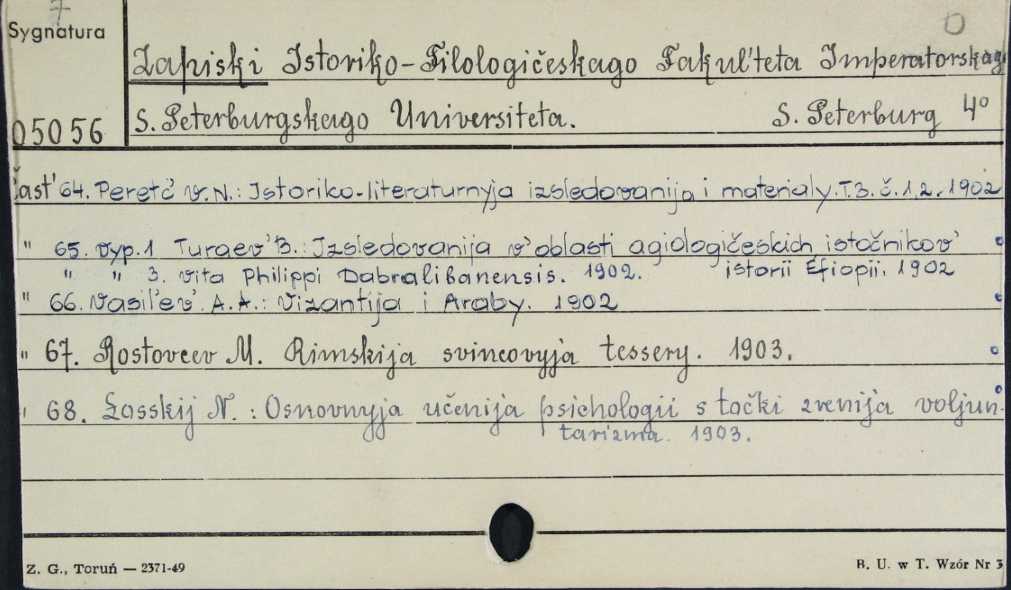 7
Sygnatura
O
Zapiski Istoriko-Filologičeskago Fakul'teta Imperatorskag
S. Peterburgskago Universiteta. S. Peterburg 4°
05056
Čast' 64. Peretc' V. N.: Istoriko-literaturnyja izsledovanija i materialy. T. 3. č. 1, 2. 1902
" 65. Vyp. 1 Turaev' B.: Izsledovanija v' oblasti agiologičeskich istočnikov'
istorii Efiopii. 1902
" " 3. Vita Philippi Dabralibanensis. 1902.
" 66. Vasil'ev'. A. A.: Vizantija i Araby. 1902
" 67. Rostovcev M. Rimskija svincovyja tessery. 1903.
" 68. Losskij N.: Osnovnyja učenija psichologii s točki zrenija voljun-
tarizma. 1903.
Z. G., Toruń — 2371-49
B. U. w T. Wzór Nr 3